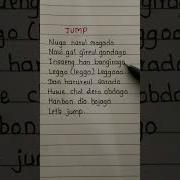 JUMP
Nuga narul magado
Naui gal gireul gandago
Insaeng han bangirago
Leggo (leggo) Leggooo
Dan haruireul sarado
Huwe chol dera obdago
Hanbon dio bojago
Let's jump.